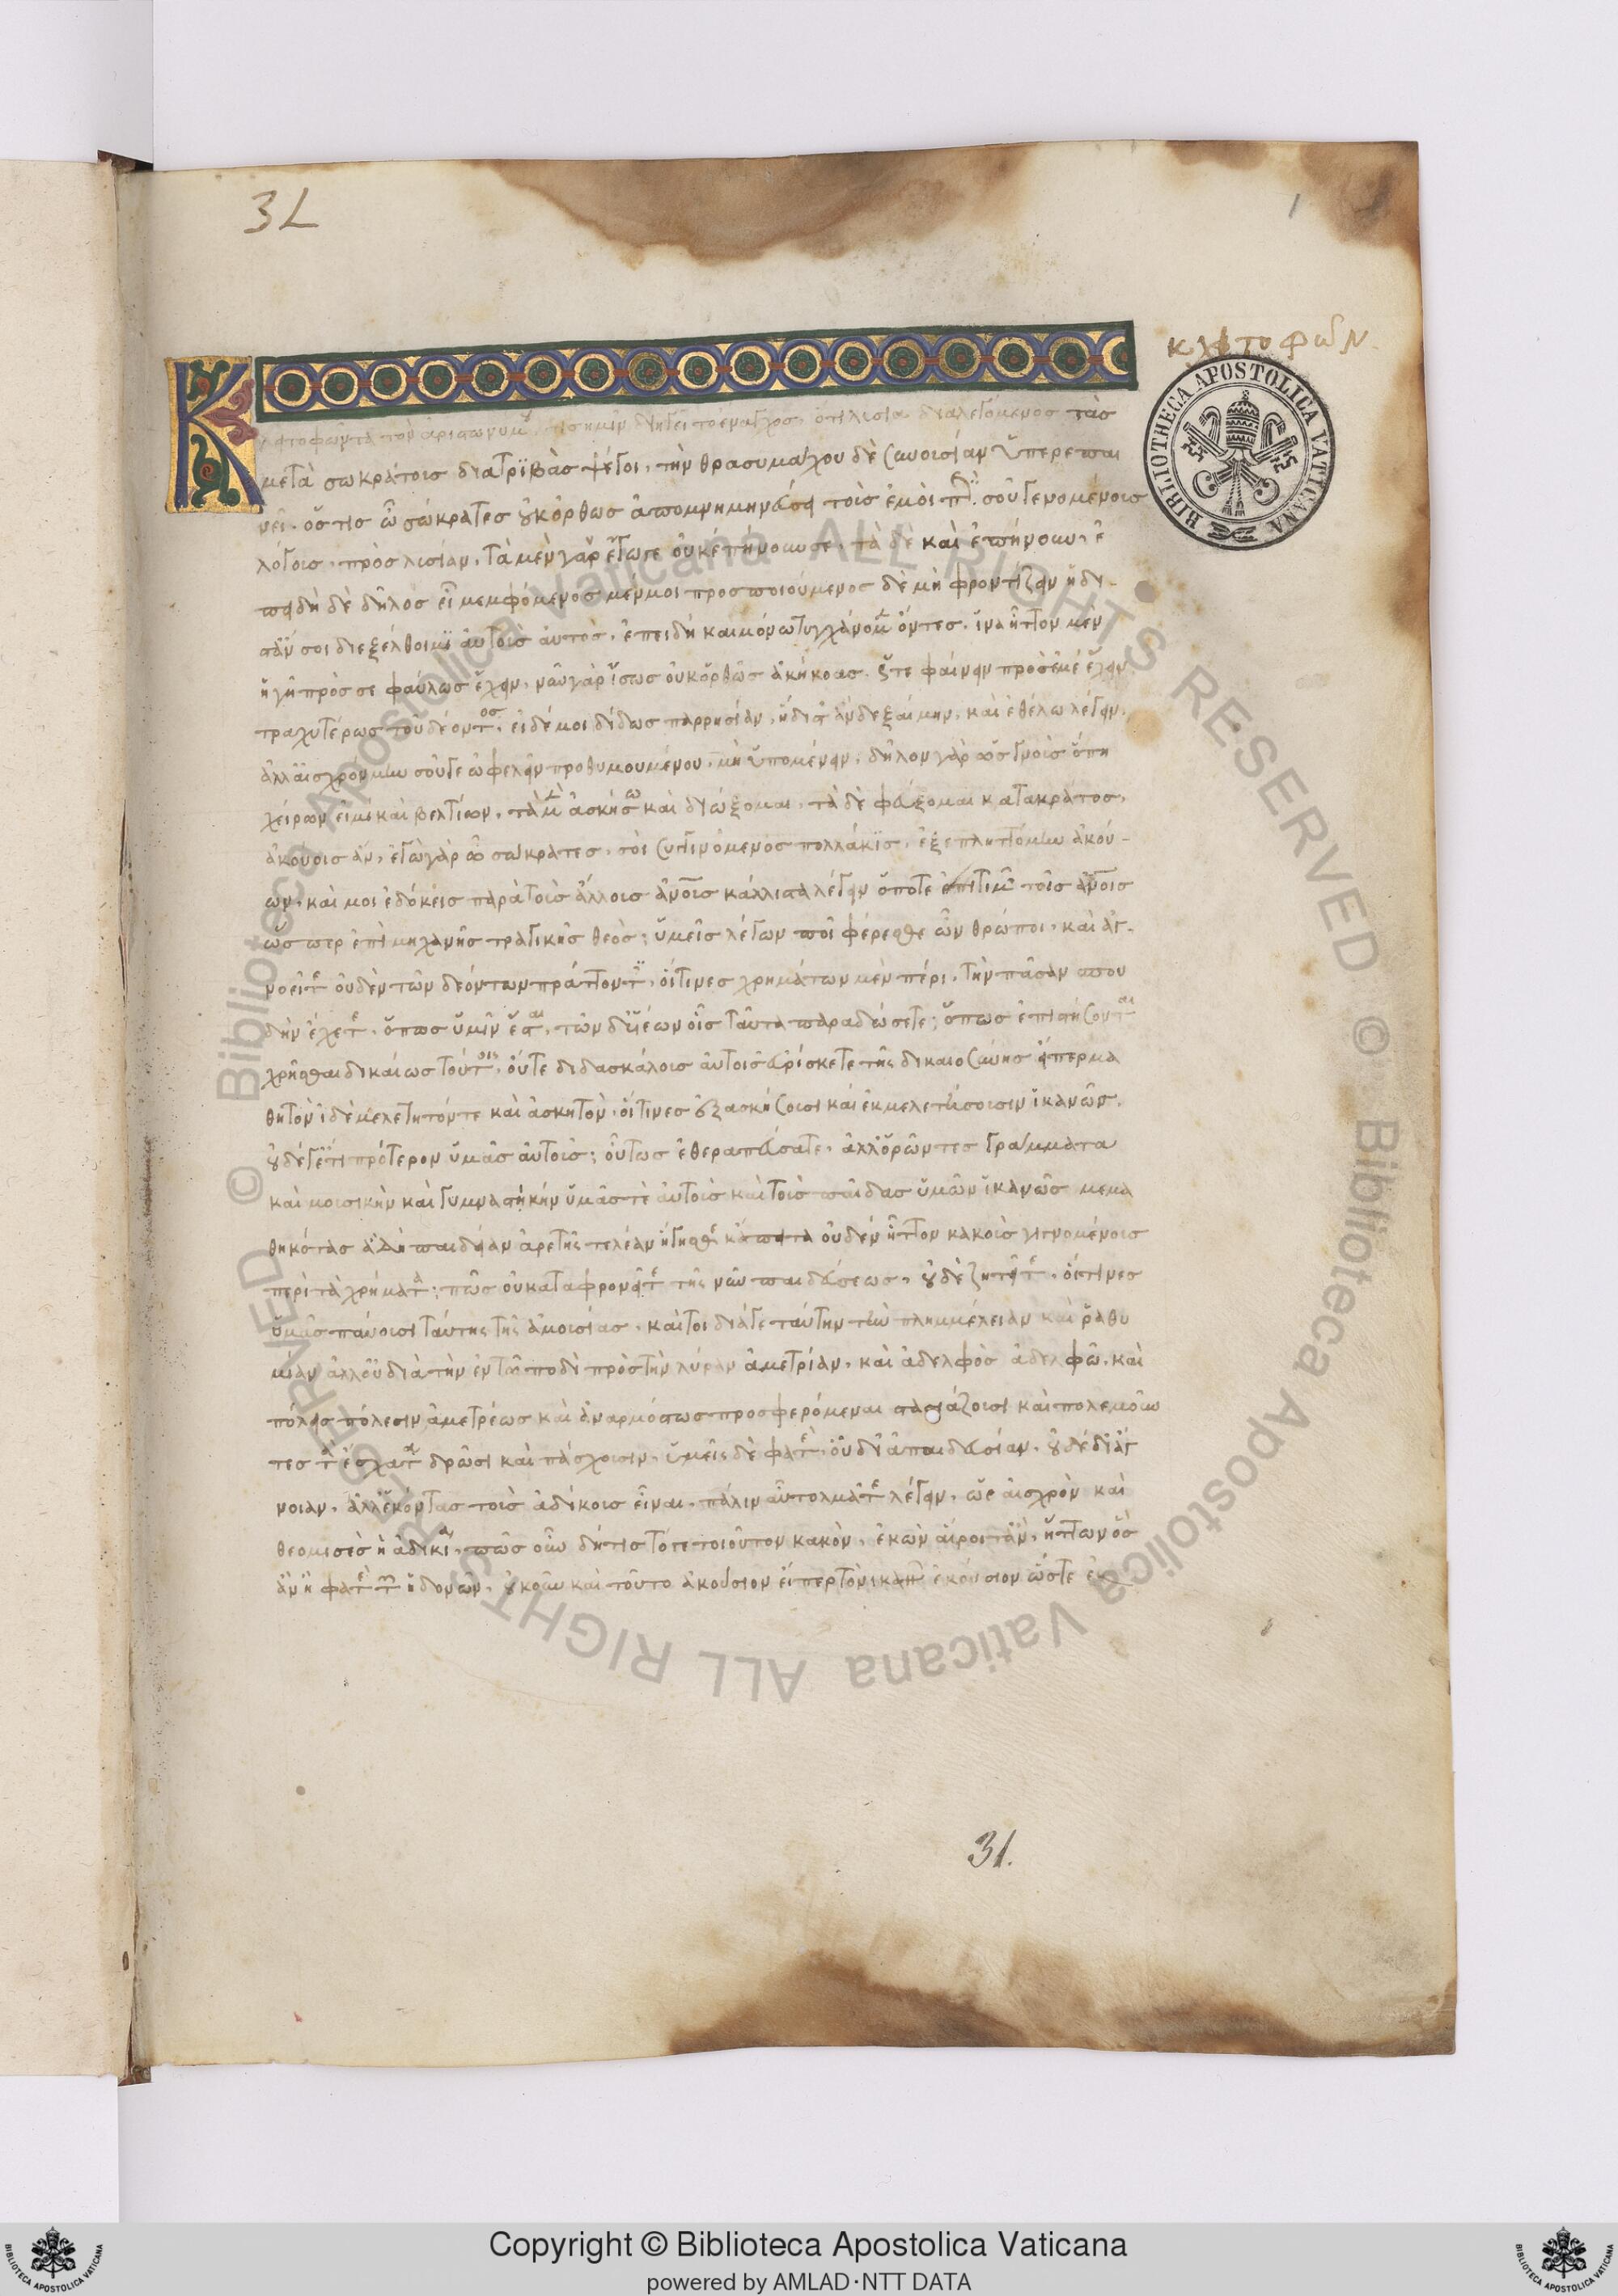 3L
1
κλειτοφῶν
BIBLIOTHECA APOSTOLICA VATICANA
Κλειτοφῶντα τὸν ἀριστωνύμου, τὶς ἡμῖν διηγεῖτο ἔναγχος, ὅτι λυσία διαλεγόμενος τὰσ
μετὰ σωκράτους διατριβὰς ψέγοι, τὴν θρασυμάχου δὲ συνουσίαν ὑπερεπαι
νεῖ. ὅστις ὦ σώκρατες οὐκ ὀρθῶς ἀπομνημόνευσε τοὺς ἐμοὶ περὶ σοῦ γενομένους
λόγους, πρὸς λυσίαν. τὰ μὲν γὰρ ἔγωγε οὐκ ἐπήνουν σε, τὰ δὲ καὶ ἐπήνουν, ἐ
πειδὴ δὲ δῆλος εἶ μεμφόμενος μέν μοι προσποιούμενος δὲ μὴ φροντίζειν ἥδι
στ' ἄν σοι διεξέλθοιμι αὐτοὺς αὐτὸς, ἐπειδὴ καὶ μόνω τυγχάνομεν ὄντες. ἵνα ἧττον μὲν
ἡγῆ πρὸς σε φαύλως ἔχειν, νῦν γὰρ ἴσως οὐκ ὀρθῶς ἀκήκοας, ὥστε φαίνειν πρὸς ἐμὲ ἔχειν
τραχυτέρως τοῦ δέοντος. εἰ δέ μοι δίδως παρρησίαν, ἥδιστα ἂν δεξαίμην, καὶ ἐθέλω λέγειν.
ἀλλ' αἰσχρὸν μὴν σοῦ γε ὠφελεῖν προθυμουμένου, μὴ ὑπομένειν, δῆλον γὰρ ὡς γνοὺς ὅπη
χείρων εἰμὶ καὶ βελτίων, τὰ μὲν ἀσκήσω καὶ διώξομαι, τὰ δὲ φεύξομαι κατακράτος,
ἀκούοις ἄν, ἐγὼ γὰρ ὦ σώκρατες, σοὶ συγγινόμενος πολλάκις, ἐξεπληττόμην ἀκού-
ων, καί μοι ἐδόκεις παρὰ τοὺς ἄλλους ἀνους κάλλιστα λέγειν ὁπότε ἐπιτιμῶν τοῖς ἀνοις
ὥσπερ ἐπὶ μηχανῆς τραγικῆς θεὸς; ὑμεῖς λέγων ποῖ φέρεσθε ὦνθρωποι, καὶ ἀγ-
νοεῖτε οὐδὲν τῶν δεόντων πράττοντες, οἵτινες χρημάτων μὲν πέρι, τὴν πᾶσαν σπου
δὴν ἔχετε, ὅπως ὑμῖν ἔσται, τῶν δ' υἱέων οἷς ταῦτα παραδώσετε; ὅπως ἐπιστήσονται
χρῆσθαι δικαίως τούτοις, οὔτε διδασκάλους αὐτοῖς εὑρίσκετε τῆς δικαιοσύνης εἴπερ μα
θητὸν εἰ δὲ μελετητόν τε καὶ ἀσκητὸν, οἵτινες ἐξασκήσουσι καὶ ἐκμελετήσουσιν ἱκανῶς.
οὐδέ γ' ἔτι πρότερον ὑμᾶς αὐτοὺς; οὕτως ἐθεραπεύσατε, ἀλλ' ὁρῶντες γράμματα
καὶ μουσικὴν καὶ γυμναστικὴν ὑμᾶς τὲ αὐτοὺς καὶ τοὺς παῖδας ὑμῶν ἱκανῶς μεμα
θηκότας ἃ δὴ παιδείαν ἀρετῆς τελέαν ἥγησθε κἄπειτα οὐδὲν ἧττον κακοὺς γιγνομένους
περὶ τὰ χρήματα; πῶς οὐ καταφρονεῖτε τῆς νῦν παιδεύσεως, οὐδὲ ζητεῖτε, οἵτινες
ὑμᾶς παύουσι ταύτης τῆς ἀμουσίας, καίτοι διά γε ταύτην τὴν πλημμέλειαν καὶ ῥαθυ
μίαν ἀλλ' οὐ διὰ τὴν ἐν τῶ ποδὶ πρὸς τὴν λύραν ἀμετρίαν, καὶ ἀδελφὸς ἀδελφῶ, καὶ
πόλεις πόλεσιν ἀμετρέως καὶ ἀναρμόστως προσφερόμεναι στασιάζουσι καὶ πολεμοῦν
τες τὰ ἔσχατα δρῶσι καὶ πάσχουσιν, ὑμεῖς δὲ φατὲ, οὐ δι' ἀπαιδευσίαν, οὐδὲ δι' ἄγ
νοιαν, ἀλλ' ἑκόντας τοὺς ἀδίκους εἶναι, πάλιν αὖ τολμᾶτε λέγειν, ὡς αἰσχρὸν καὶ
θεομισὲς ἡ ἀδικία, πῶς οὖν δή τις τό γε τοιοῦτον κακὸν, ἑκὼν αἱροῖτ' ἄν, ἥττων ὃς
ἂν ἦ φατὲ τῶν ἡδονῶν, οὐκοῦν καὶ τοῦτο ἀκούσιον εἴπερ τὸ νικᾶν ἑκούσιον ὥστε ἐκ
31.
Copyright © Biblioteca Apostolica Vaticana
powered by AMLAD·NTT DATA
© Biblioteca Apostolica Vaticana ALL RIGHTS RESERVED © Biblioteca Apostolica Vaticana ALL RIGHTS RESERVED